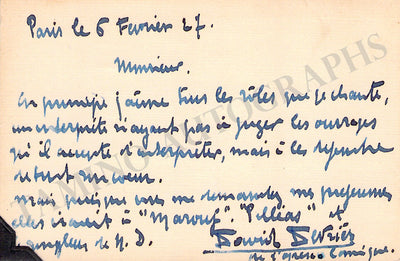 Paris le 6 Fevrier 27.
Monsieur.
En principe j'aime tous les rôles que je chante,
un interprète n'ayant pas à juger les ouvrages
qu'il accepte d'interpréter, mais à les
de tout son coeur.
Mais puisque vous me demandez mes
elles iraient à "Marouf". "Pelléas" et
de N. D.
David Devriès
de l'Opéra Comique.
TAMINO AUTOGRAPHS